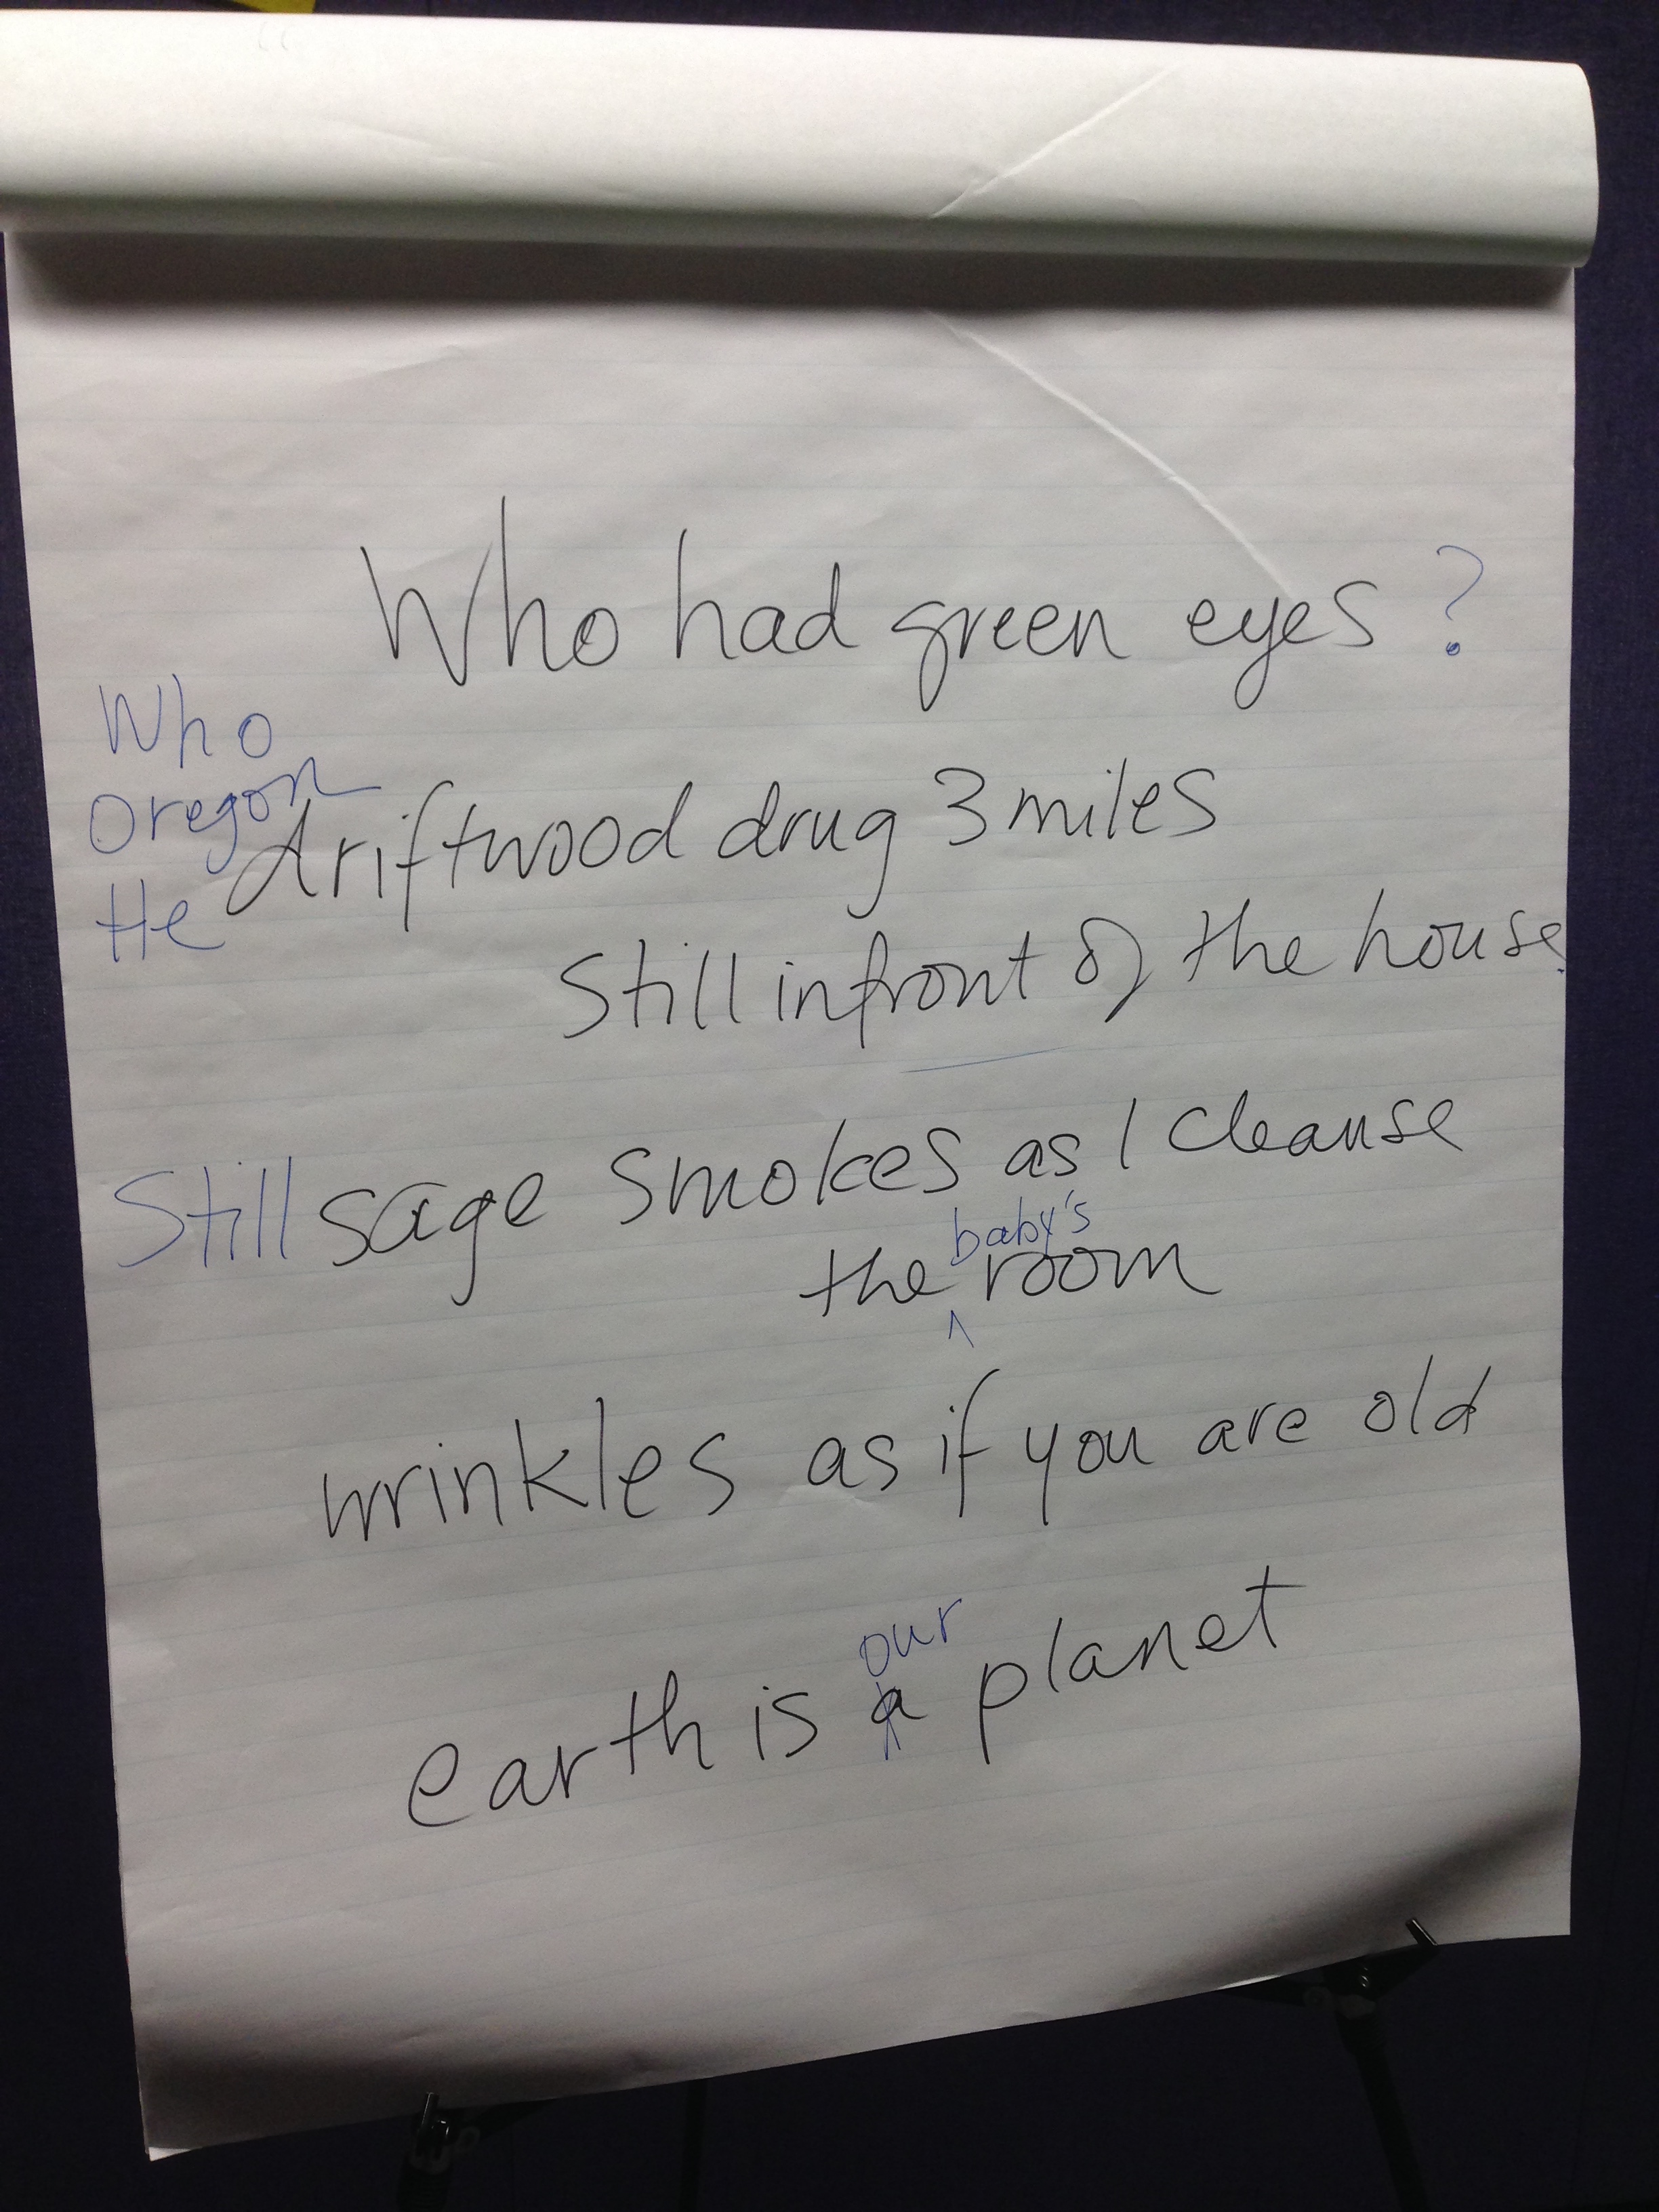 Who had green eyes?
Who
Oregon
driftwood drug 3 miles
He
Still in front of the house
Still sage smokes as I cleanse
baby's
the room
wrinkles as if you are old
our
earth is a planet